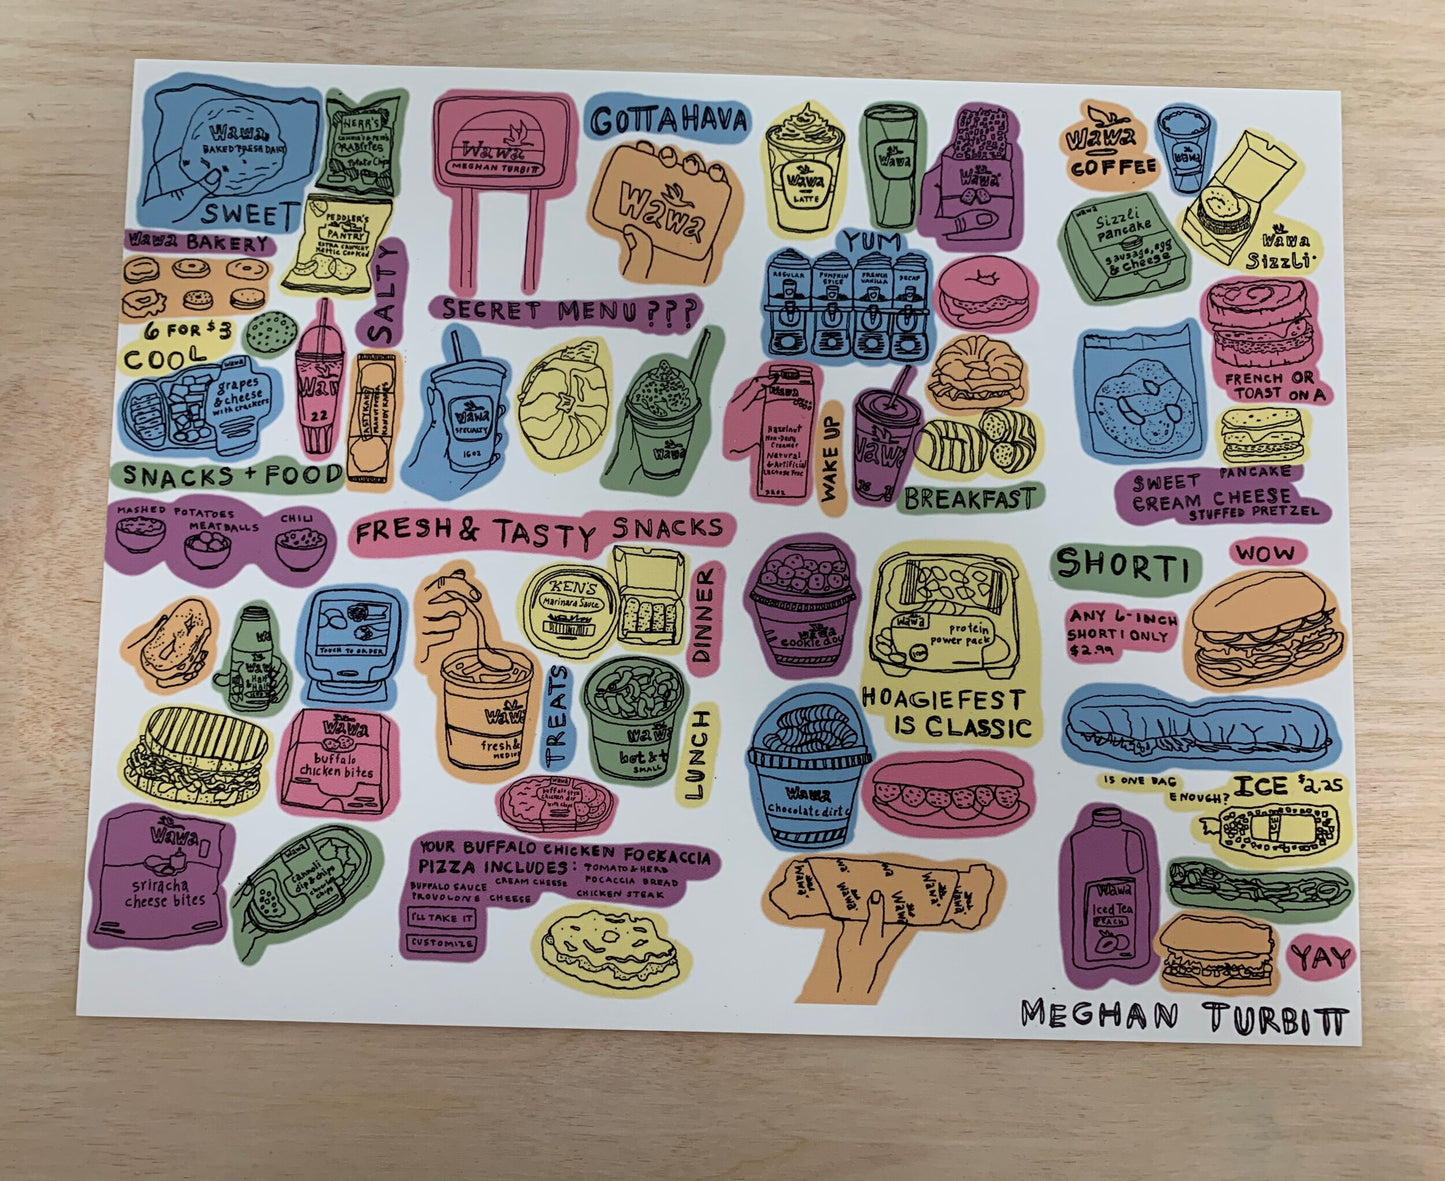 Wawa
BAKED FRESH DAILY
SWEET
HERR'S
Potato Chips
PEDDLER'S
PANTRY
EXTRA CRUNCHY
KETTLE COOKED
SALTY
Wawa BAKERY
6 FOR $3
COOL
Wawa
grapes
& cheese
with crackers
Wawa
22
TASTYKAKE
KANDY KAKES
SNACKS + FOOD
MASHED POTATOES
MEATBALLS
CHILI
Wawa
MEGHAN TURBITT
GOTTAHAVA
Wawa
SECRET MENU ???
Wawa
SPECIALTY
16oz
Wawa
FRESH & TASTY SNACKS
Wawa
LATTE
Wawa
Wawa
YUM
REGULAR
PUMPKIN
SPICE
FRENCH
VANILLA
DECAF
Wawa
Hazelnut
Non-Dairy
Creamer
Natural
& Artificial
Lactose Free
32oz
WAKE UP
Wawa
BREAKFAST
Wawa
COFFEE
Wawa
Wawa
Sizzli
pancake
sausage, egg
& cheese
Wawa
Sizzli
FRENCH OR
TOAST ON A
PANCAKE
SWEET
CREAM CHEESE
STUFFED PRETZEL
TOUCH TO ORDER
Wawa
buffalo
chicken bites
Wawa
sriracha
cheese bites
Wawa
cannoli
dip & chips
Wawa
fresh &
MEDIUM
KEN'S
Marinara Sauce
DINNER
TREATS
Wawa
hot & t
SMALL
LUNCH
Wawa
YOUR BUFFALO CHICKEN FOCKACCIA
PIZZA INCLUDES: TOMATO & HERB
BUFFALO SAUCE CREAM CHEESE POCACCIA BREAD
PROVOLONE CHEESE CHICKEN STEAK
I'LL TAKE IT
CUSTOMIZE
Wawa
cookie dou
Wawa
protein
power pack
HOAGIEFEST
IS CLASSIC
Wawa
chocolate dirt c
Wawa
Wawa
Wawa
Wawa
SHORTI
WOW
ANY 6-INCH
SHORTI ONLY
$2.99
IS ONE BAG
ENOUGH?
ICE $2.25
ICE
Wawa
Iced Tea
PEACH
YAY
MEGHAN TURBITT